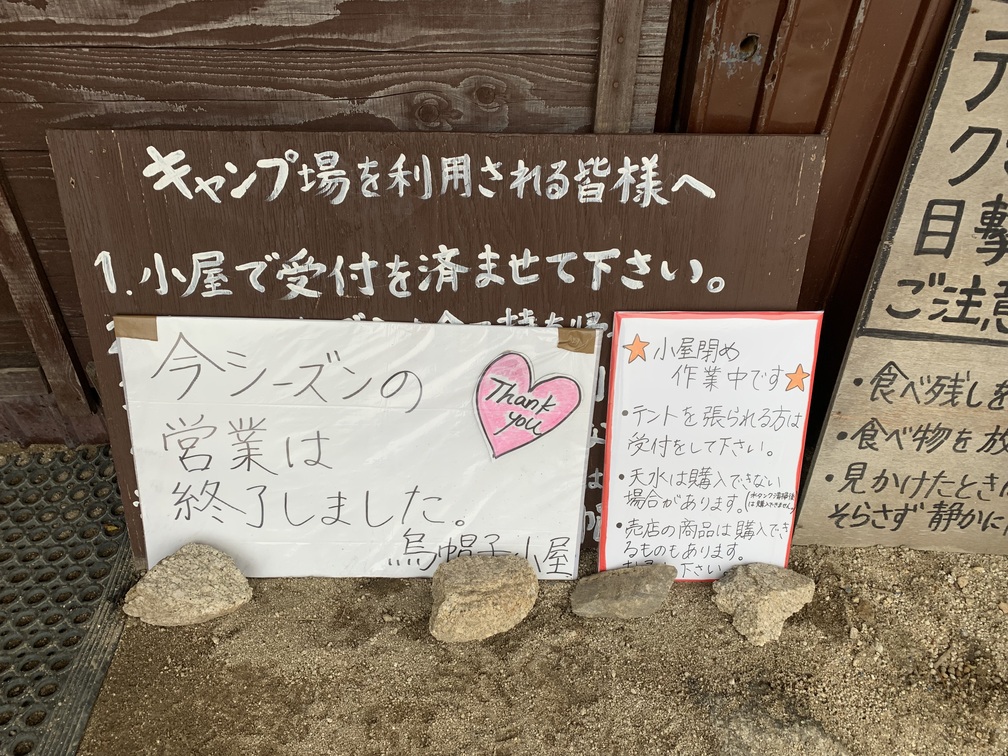 キャンプ場を利用される皆様へ
1.小屋で受付を済ませて下さい。
今シーズンの
営業は
終了しました。
烏帽子小屋
Thank
you
小屋閉め
作業中です
・テントを張られる方は
受付をして下さい。
・天水は購入できない
場合があります。(水タンク清掃後
は購入できません)
・売店の商品は購入でき
るものもあります。
下さい
目撃
ご注意
・食べ残しを
・食べ物を放
・見かけたとき
そらさず静かに